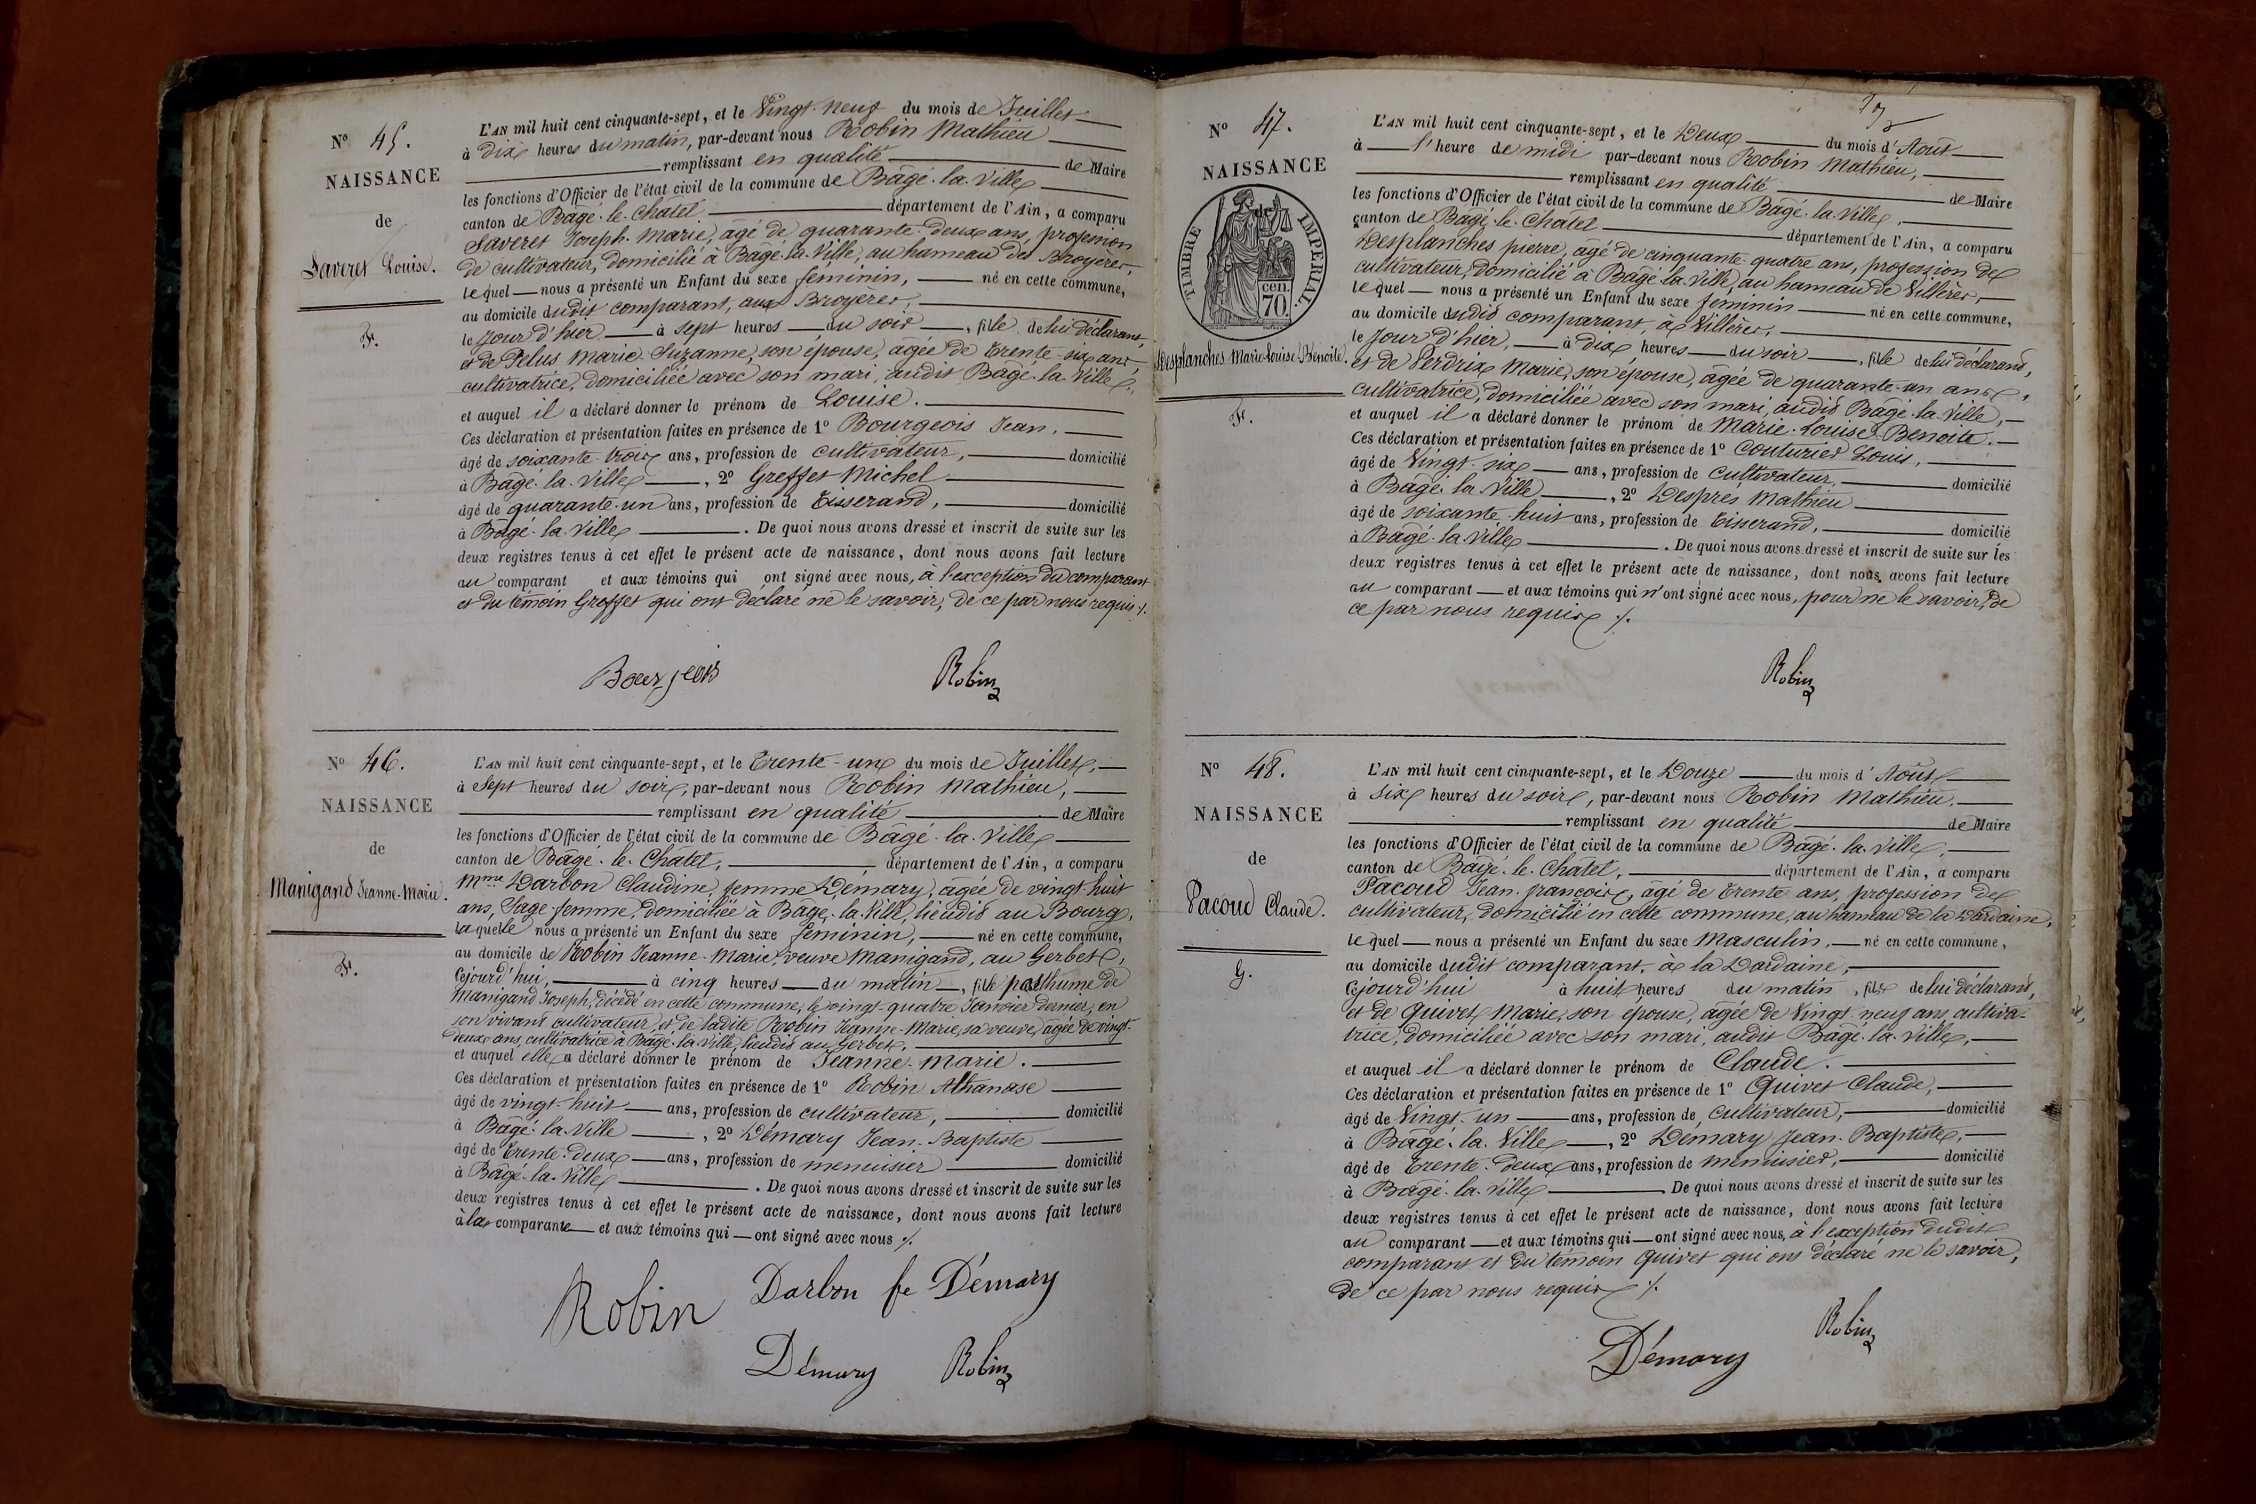 Nº 45.
NAISSANCE
de
Saveret Louise.
F.
L'AN mil huit cent cinquante-sept, et le Vingt-neuf du mois de Juillet
à dix heures du matin, par-devant nous Robin Mathieu
remplissant en qualité de Maire
les fonctions d'Officier de l'état civil de la commune de Bâgé-la-Ville
canton de Bâgé-le-Châtel, département de l'Ain, a comparu
Saveret Joseph-Marie, âgé de quarante-deux ans, profession
de cultivateur, domicilié à Bâgé-la-Ville, au hameau des Broyeres,
lequel nous a présenté un Enfant du sexe féminin, né en cette commune,
au domicile dudit comparant, aux Broyeres,
le Jour d'hier à sept heures du soir, fille de lui déclarant,
et de Pelus Marie-Suzanne, son épouse, âgée de trente-six ans,
cultivatrice, domiciliée avec son mari, audit Bâgé-la-Ville,
et auquel il a déclaré donner le prénom de Louise.
Ces déclaration et présentation faites en présence de 1º Bourgeois Jean,
âgé de soixante-trois ans, profession de cultivateur, domicilié
à Bâgé-la-Ville, 2º Greffet Michel
âgé de quarante-un ans, profession de Tisserand, domicilié
à Bâgé-la-Ville. De quoi nous avons dressé et inscrit de suite sur les
deux registres tenus à cet effet le présent acte de naissance, dont nous avons fait lecture
au comparant et aux témoins qui ont signé avec nous, à l'exception du comparant
et du témoin Greffet qui ont déclaré ne le savoir, de ce par nous requis ./.
Bourjeois Robin
Nº 46.
NAISSANCE
de
Manigand Jeanne-Marie.
F.
L'AN mil huit cent cinquante-sept, et le Trente-un du mois de Juillet,
à Sept heures du soir, par-devant nous Robin Mathieu,
remplissant en qualité de Maire
les fonctions d'Officier de l'état civil de la commune de Bâgé-la-Ville
canton de Bâgé-le-Châtel, département de l'Ain, a comparu
Mme Darbon Claudine, femme Démary, âgée de vingt-huit
ans, Sage-femme, domiciliée à Bâgé-la-Ville, lieudit au Bourg,
laquelle nous a présenté un Enfant du sexe féminin, né en cette commune,
au domicile de Robin Jeanne-Marie, veuve Manigand, au Gerbet,
Cejourd'hui, à cinq heures du matin, fille posthume de
Manigand Joseph, décédé en cette commune, le vingt-quatre Janvier dernier, en
son vivant cultivateur, et de ladite Robin Jeanne-Marie, sa veuve, âgée de vingt-
deux ans, cultivatrice à Bâgé-la-Ville, lieudit au Gerbet,
et auquel elle a déclaré donner le prénom de Jeanne-Marie.
Ces déclaration et présentation faites en présence de 1º Robin Athanase
âgé de vingt-huit ans, profession de cultivateur, domicilié
à Bâgé-la-Ville, 2º Démary Jean-Baptiste
âgé de Trente-deux ans, profession de menuisier domicilié
à Bâgé-la-Ville. De quoi nous avons dressé et inscrit de suite sur les
deux registres tenus à cet effet le présent acte de naissance, dont nous avons fait lecture
à la comparante et aux témoins qui ont signé avec nous ./.
Robin Darbon fe Démary
Démary Robin
Nº 47.
NAISSANCE
TIMBRE IMPERIAL.
cen.
70
Desplanches Marie-Louise-Benoite.
F.
L'AN mil huit cent cinquante-sept, et le Deux du mois d'Août
à l'heure de midi par-devant nous Robin Mathieu,
remplissant en qualité de Maire
les fonctions d'Officier de l'état civil de la commune de Bâgé-la-Ville,
canton de Bâgé-le-Châtel département de l'Ain, a comparu
Desplanches pierre, âgé de cinquante-quatre ans, profession de
cultivateur, domicilié à Bâgé-la-Ville, au hameau de Villères,
lequel nous a présenté un Enfant du sexe féminin né en cette commune,
au domicile dudit comparant, à Villères,
le Jour d'hier, à dix heures du soir, fille de lui déclarant,
et de Perdrix Marie, son épouse, âgée de quarante-un ans,
cultivatrice, domiciliée avec son mari, audit Bâgé-la-Ville,
et auquel il a déclaré donner le prénom de Marie-Louise-Benoite.
Ces déclaration et présentation faites en présence de 1º Couturier Louis,
âgé de Vingt-six ans, profession de cultivateur, domicilié
à Bâgé-la-Ville, 2º Desprès Mathieu
âgé de soixante-huit ans, profession de Tisserand, domicilié
à Bâgé-la-Ville. De quoi nous avons dressé et inscrit de suite sur les
deux registres tenus à cet effet le présent acte de naissance, dont nous avons fait lecture
au comparant et aux témoins qui n'ont signé avec nous, pour ne le savoir, de
ce par nous requis ./.
Robin
Nº 48.
NAISSANCE
de
Pacoud Claude.
G.
L'AN mil huit cent cinquante-sept, et le Douze du mois d'Août
à six heures du soir, par-devant nous Robin Mathieu,
remplissant en qualité de Maire
les fonctions d'Officier de l'état civil de la commune de Bâgé-la-Ville,
canton de Bâgé-le-Châtel, département de l'Ain, a comparu
Pacoud Jean-françois, âgé de trente ans, profession de
cultivateur, domicilié en cette commune, au hameau de la Dardaine,
lequel nous a présenté un Enfant du sexe Masculin, né en cette commune,
au domicile dudit comparant, à la Dardaine,
Cejourd'hui à huit heures du matin, fils de lui déclarant,
et de Quivet Marie, son épouse, âgée de Vingt-neuf ans, cultiva-
trice, domiciliée avec son mari, audit Bâgé-la-Ville,
et auquel il a déclaré donner le prénom de Claude.
Ces déclaration et présentation faites en présence de 1º Quivet Claude,
âgé de Vingt-un ans, profession de cultivateur, domicilié
à Bâgé-la-Ville, 2º Démary Jean-Baptiste,
âgé de Trente-deux ans, profession de menuisier, domicilié
à Bâgé-la-Ville. De quoi nous avons dressé et inscrit de suite sur les
deux registres tenus à cet effet le présent acte de naissance, dont nous avons fait lecture
au comparant et aux témoins qui ont signé avec nous, à l'exception dudit
comparant et du témoin Quivet qui ont déclaré ne le savoir,
de ce par nous requis ./.
Démary Robin